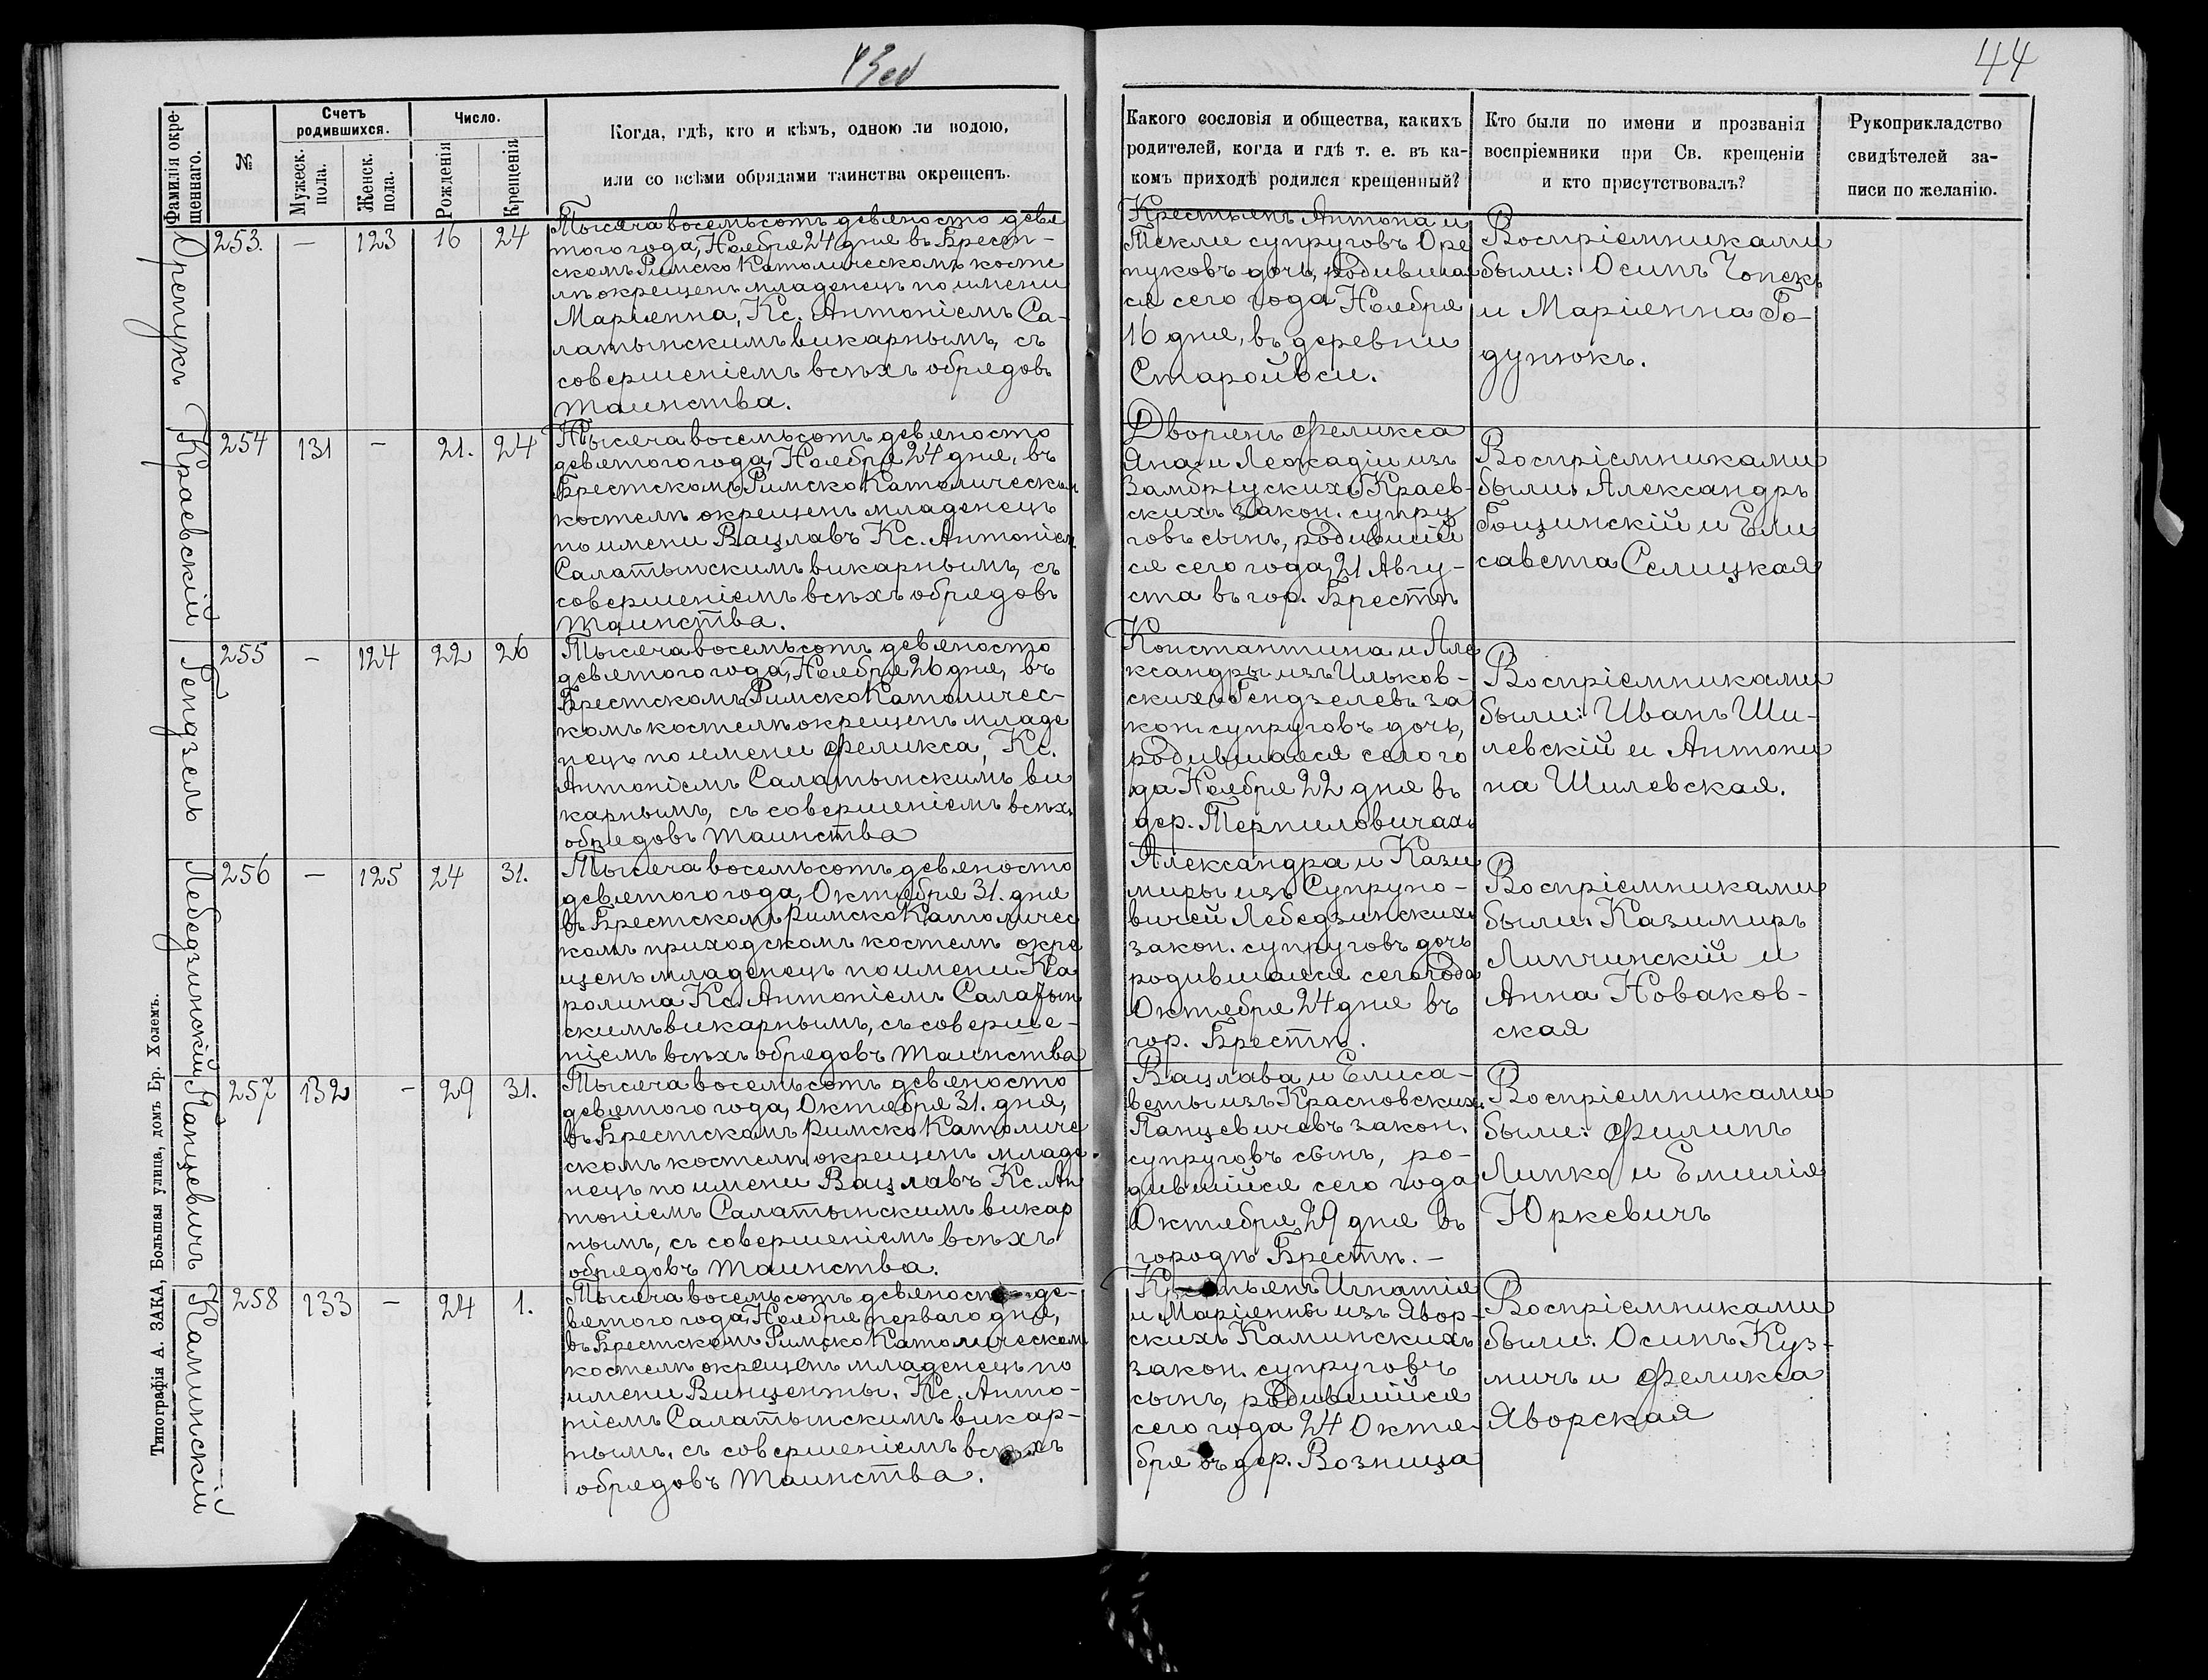 44
Фамилія окре-
щеннаго.
№
Счетъ
родившихся.
Мужеск.
пола.
Женск.
пола.
Число.
Рожденія
Крещенія
Когда, гдѣ, кто и кѣмъ, одною ли водою,
или со всѣми обрядами таинства окрещенъ.
Какого сословія и общества, какихъ
родителей, когда и гдѣ т. е. въ ка-
комъ приходѣ родился крещенный?
Кто были по имени и прозванія
воспріемники при Св. крещеніи
и кто присутствовалъ?
Рукоприкладство
свидѣтелей за-
писи по желанію.
Орепукъ
253. — 123 16 24
Тысяча восемьсотъ девяносто девя
того года, Ноября 24 дня въ Брест-
скомъ Римско Католическомъ косте
лѣ окрещенъ младенецъ по имени
Маріянна, Кс. Антоніемъ Са-
латынскимъ викарнымъ, съ
совершеніемъ всѣхъ обрядовъ
таинства.
Крестьянъ Антона и
Текли супруговъ Оре
пуковъ дочь, родивша
ся сего года Ноября
16 дня, въ деревни
Старойвси.
Воспріемниками
были: Осипъ
и Маріянна Го-
дунюкъ.
Краевскій
254 131 — 21. 24
Тысяча восемьсотъ девяносто
девятого года, Ноября 24 дня, въ
Брестскомъ Римско Католическом
костелѣ окрещенъ младенецъ
по имени Вацлавъ Кс. Антоніем
Салатынскимъ викарнымъ, съ
совершеніемъ всѣхъ обрядовъ
таинства.
Дворянъ Феликса
Яна и Леокадіи изъ
Замбржускихъ Краев-
скихъ закон. супру
говъ сынъ, родившій
ся сего года, 21 Авгу-
ста въ гор. Брестѣ
Воспріемниками
были: Александръ
Гощинскій и Ели
савета Селицкая
Гендзель
255 — 124 22 26
Тысяча восемьсотъ девяносто
девятого года, Ноября 26 дня, въ
Брестскомъ Римско Католичес-
комъ костелѣ окрещенъ младе
нецъ по имени Феликса, Кс.
Антоніемъ Салатынскимъ ви
карнымъ, съ совершеніемъ всѣхъ
обрядовъ таинства
Константина и Але
ксандры изъ Ильков-
скихъ Гендзелевъ за
кон. супруговъ дочь,
родившаяся сего го
да Ноября 22 дня въ
дер. Терпиловичахъ
Воспріемниками
были: Иванъ Ши-
левскій и Антони
на Шилевская.
Лебедзинскій
256 — 125 24 31.
Тысяча восемьсотъ девяносто
девятого года, Октября 31. дня
въ Брестскомъ Римско Католичес
комъ приходскомъ костелѣ окре
щенъ младенецъ по имени Ка
ролина Кс. Антоніемъ Салатын
скимъ викарнымъ, съ соверше-
ніемъ всѣхъ обрядовъ таинства
Александра и Кази
миры изъ Супруно-
вичей Лебедзинскихъ
закон. супруговъ дочь
родившаяся сего года
Октября 24 дня въ
гор. Брестѣ.
Воспріемниками
были: Казимиръ
Липчинскій и
Анна Новаков-
ская
Панцевичъ
257 132 — 29 31.
Тысяча восемьсотъ девяносто
девятого года, Октября 31. дня,
въ Брестскомъ Римско Католиче
скомъ костелѣ окрещенъ младе
нецъ по имени Вацлавъ Кс. Ан
тоніемъ Салатынскимъ викар
нымъ, съ совершеніемъ всѣхъ
обрядовъ таинства.
Вацлава и Елиса-
веты изъ Красновскихъ
Панцевичевъ закон.
супруговъ сынъ, ро-
дившійся сего года
Октября 29 дня въ
городѣ Брестѣ. —
Воспріемниками
были: Филипъ
Липко и Емилія
Юркевичъ
Каминскій
258 133 — 24 1.
Тысяча восемьсотъ девяносто де-
вятого года, Ноября перваго дня,
въ Брестскомъ Римско Католическом
костелѣ окрещенъ младенецъ по
имени Винценты, Кс. Анто-
ніемъ Салатынскимъ викар-
нымъ, съ совершеніемъ всѣхъ
обрядовъ таинства.
Крестьянъ Игнатія
и Маріянны изъ Явор-
скихъ Каминскихъ
закон. супруговъ
сынъ, родившійся
сего года 24 Октя-
бря въ дер. Возница
Воспріемниками
были: Осипъ Куз-
мичъ и Феликса
Яворская
Типографія А. ЗАКА, Большая улица, домъ Бр. Холемъ.